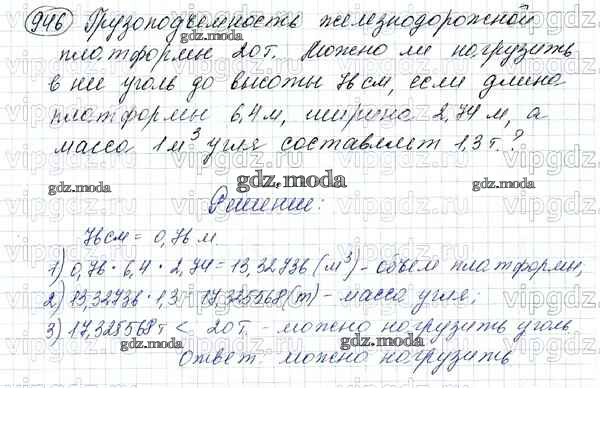 946 Грузоподъемность железнодорожной
платформы 20т. Можно ли нагрузить
в нее уголь до высоты 76 см, если длина
платформы 6,4 м, ширина 2,74 м, а
масса 1 м³ угля составляет 1,3 т.?
gdz.moda gdz.moda gdz.moda
Решение:
76 см = 0,76 м
1) 0,76 · 6,4 · 2,74 = 13,32736 (м³) - объем платформы;
2) 13,32736 · 1,3 = 17,325568 (т) - масса угля;
3) 17,325568 т < 20т. - можно нагрузить уголь
gdz.moda gdz.moda
Ответ: можно нагрузить